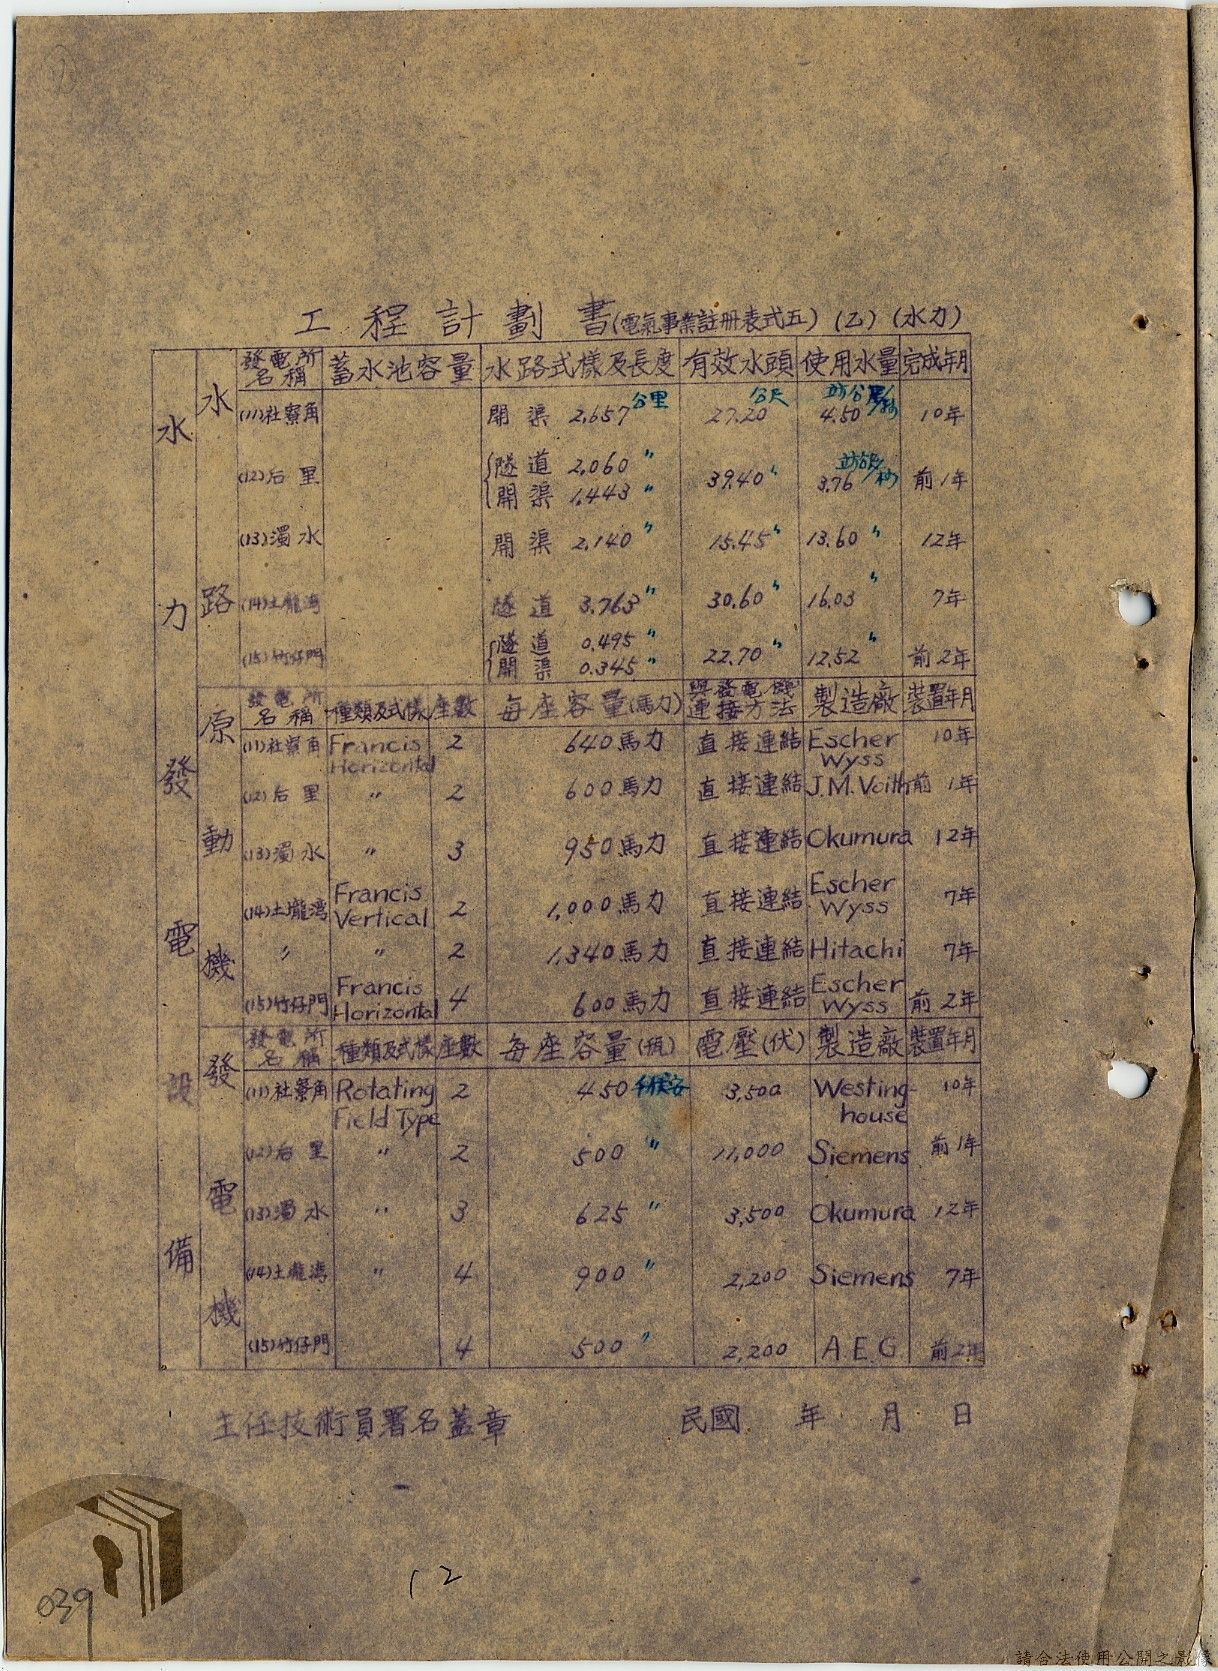 工程計劃書(電氣事業註冊表式五)(乙)(水力)
水力發電設備
水路
發電所名稱 蓄水池容量 水路式樣及長度 有效水頭 使用水量 完成年月
(11)社寮角 開渠 2.657公里 27.20公尺 4.50立方公尺/秒 10年
(12)后里 隧道 2.060〃 39.40〃 3.76立方公尺/秒 前1年
開渠 1.443〃
(13)濁水 開渠 2.140〃 15.45〃 13.60〃 12年
(14)土壠湾 隧道 3.763〃 30.60〃 16.03〃 7年
(15)竹仔門 隧道 0.495〃 22.70〃 12.52〃 前2年
開渠 0.345〃
原動機
發電所名稱 種類及式樣 座數 每座容量(馬力) 與發電機連接方法 製造廠 裝置年月
(11)社寮角 Francis Horizontal 2 640馬力 直接連結 Escher Wyss 10年
(12)后里 〃 2 600馬力 直接連結 J.M.Voith 前1年
(13)濁水 〃 3 950馬力 直接連結 Okumura 12年
(14)土壠湾 Francis Vertical 2 1,000馬力 直接連結 Escher Wyss 7年
〃 〃 2 1,340馬力 直接連結 Hitachi 7年
(15)竹仔門 Francis Horizontal 4 600馬力 直接連結 Escher Wyss 前2年
發電機
發電所名稱 種類及式樣 座數 每座容量(瓩) 電壓(伏) 製造廠 裝置年月
(11)社寮角 Rotating Field Type 2 450 3,500 Westinghouse 10年
(12)后里 〃 2 500〃 11,000 Siemens 前1年
(13)濁水 〃 3 625〃 3,500 Okumura 12年
(14)土壠湾 〃 4 900〃 2,200 Siemens 7年
(15)竹仔門 4 500〃 2,200 A.E.G 前2年
主任技術員署名蓋章 民國 年 月 日
12
039
請合法使用公開之影像